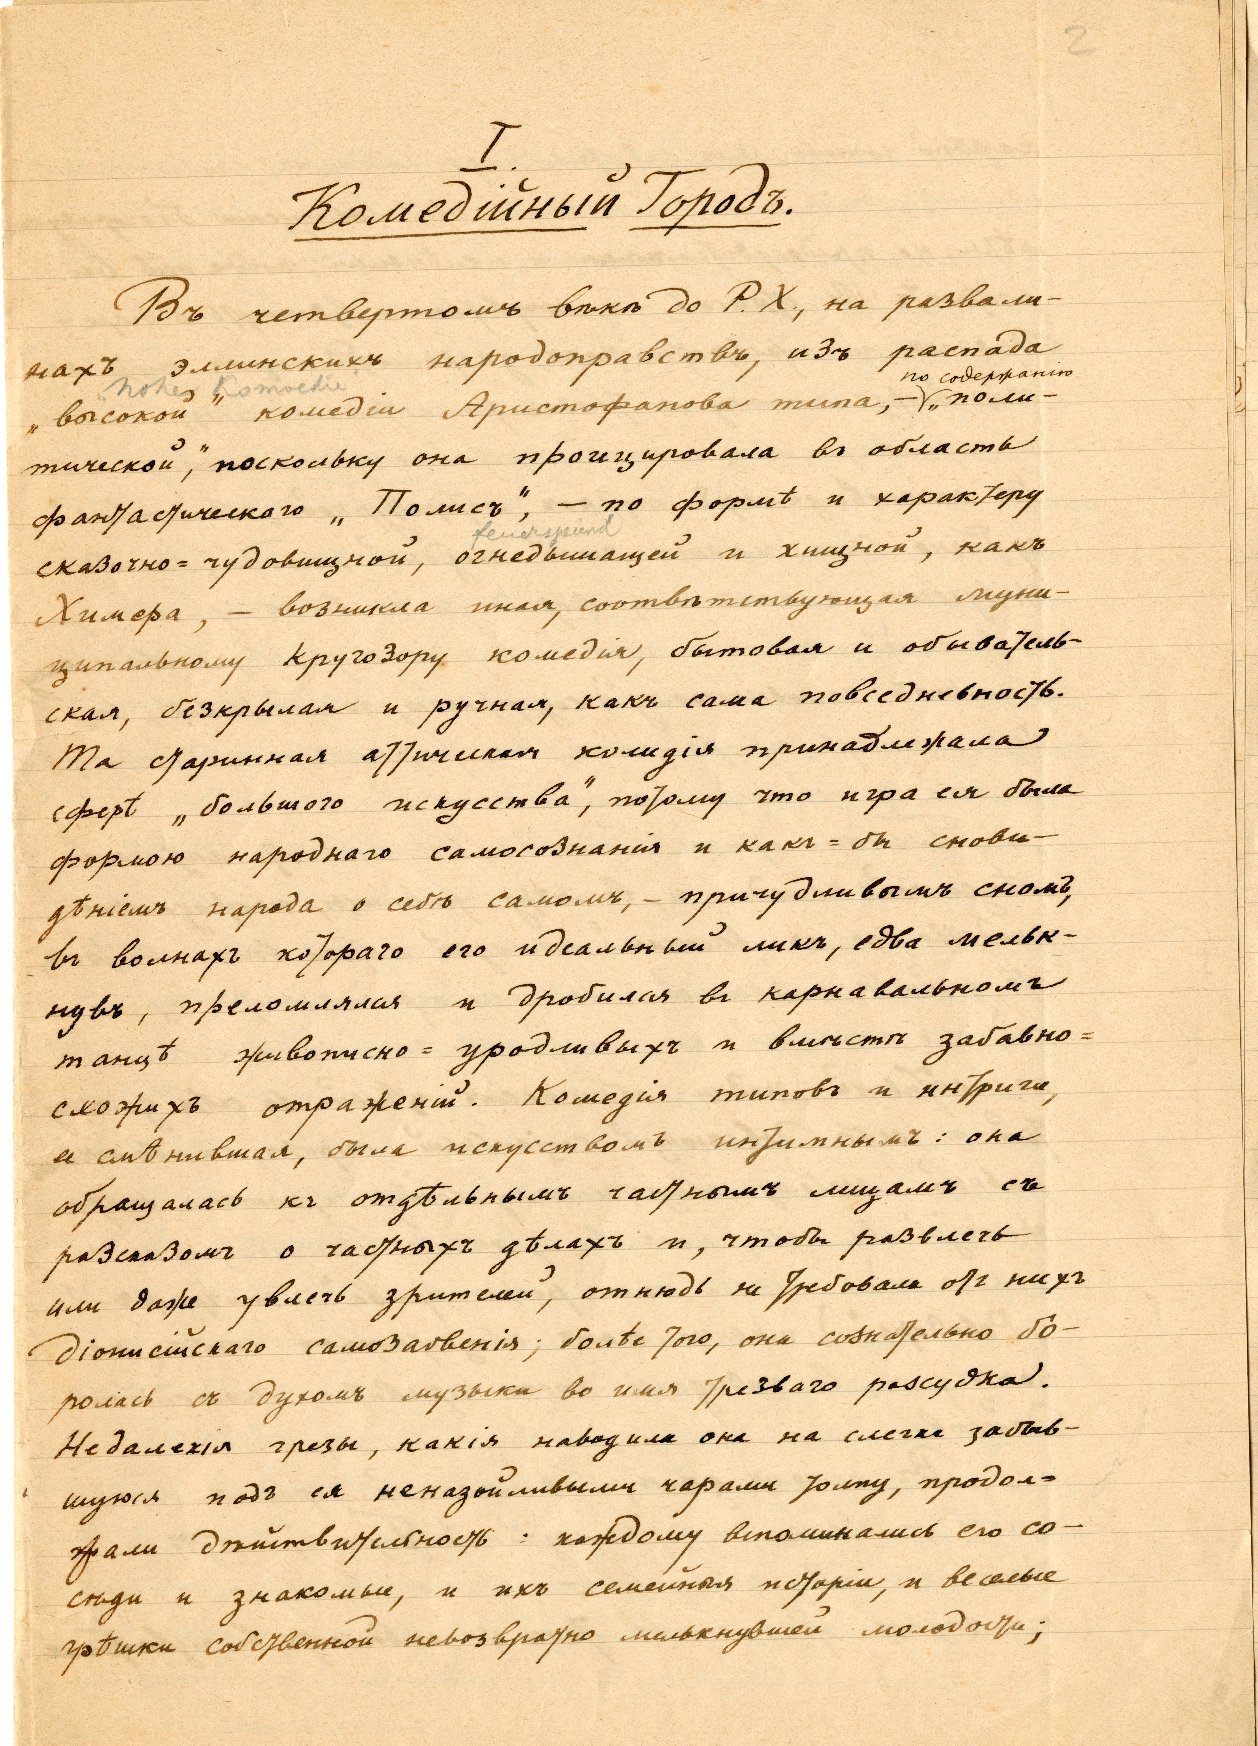 2
I.
Комедійный Городъ.
Въ четвертомъ вѣкѣ до Р. Х., на развали-
нахъ эллинскихъ народоправствъ, изъ распада
hohe Komoedie
по содержанію
„высокой" комедіи Аристофанова типа, — „поли-
тической", поскольку она проицировала въ область
фантастическаго „Полисъ", — по формѣ и характеру
feuerspeiend
сказочно=чудовищной, огнедышащей и хищной, какъ
Химера, — возникла иная, соотвѣтствующая муни-
ципальному кругозору комедія, бытовая и обыватель-
ская, безкрылая и ручная, какъ сама повседневность.
Та старинная аттическая комидія принадлежала
сферѣ „большого искусства", потому что игра ея была
формою народнаго самосознанія и какъ=бы снови-
дѣніемъ народа о себѣ самомъ, — причудливымъ сномъ,
въ волнахъ котораго его идеальный ликъ, едва мельк-
нувъ, преломлялся и дробился въ карнавальномъ
танцѣ живописно=уродливыхъ и вмѣстѣ забавно=
схожихъ отраженій. Комедія типовъ и интриги,
ее смѣнившая, была искусствомъ интимнымъ: она
обращалась къ отдѣльнымъ частнымъ лицамъ съ
разсказомъ о частныхъ дѣлахъ и, чтобы развлечь
или даже увлечь зрителей, отнюдь не требовала отъ нихъ
Діонисійскаго самозабвенія; болѣе того, она сознательно бо-
ролась съ духомъ музыки во имя трезваго разсудка.
Недалекія грезы, какія наводила она на слегка забыв-
шуюся подъ ея неназойливыми чарами толпу, продол=
жали дѣйствительность: каждому вспоминались его со-
сѣди и знакомые, и ихъ семейныя исторіи, и веселые
грѣшки собственной невозвратно мелькнувшей молодости;